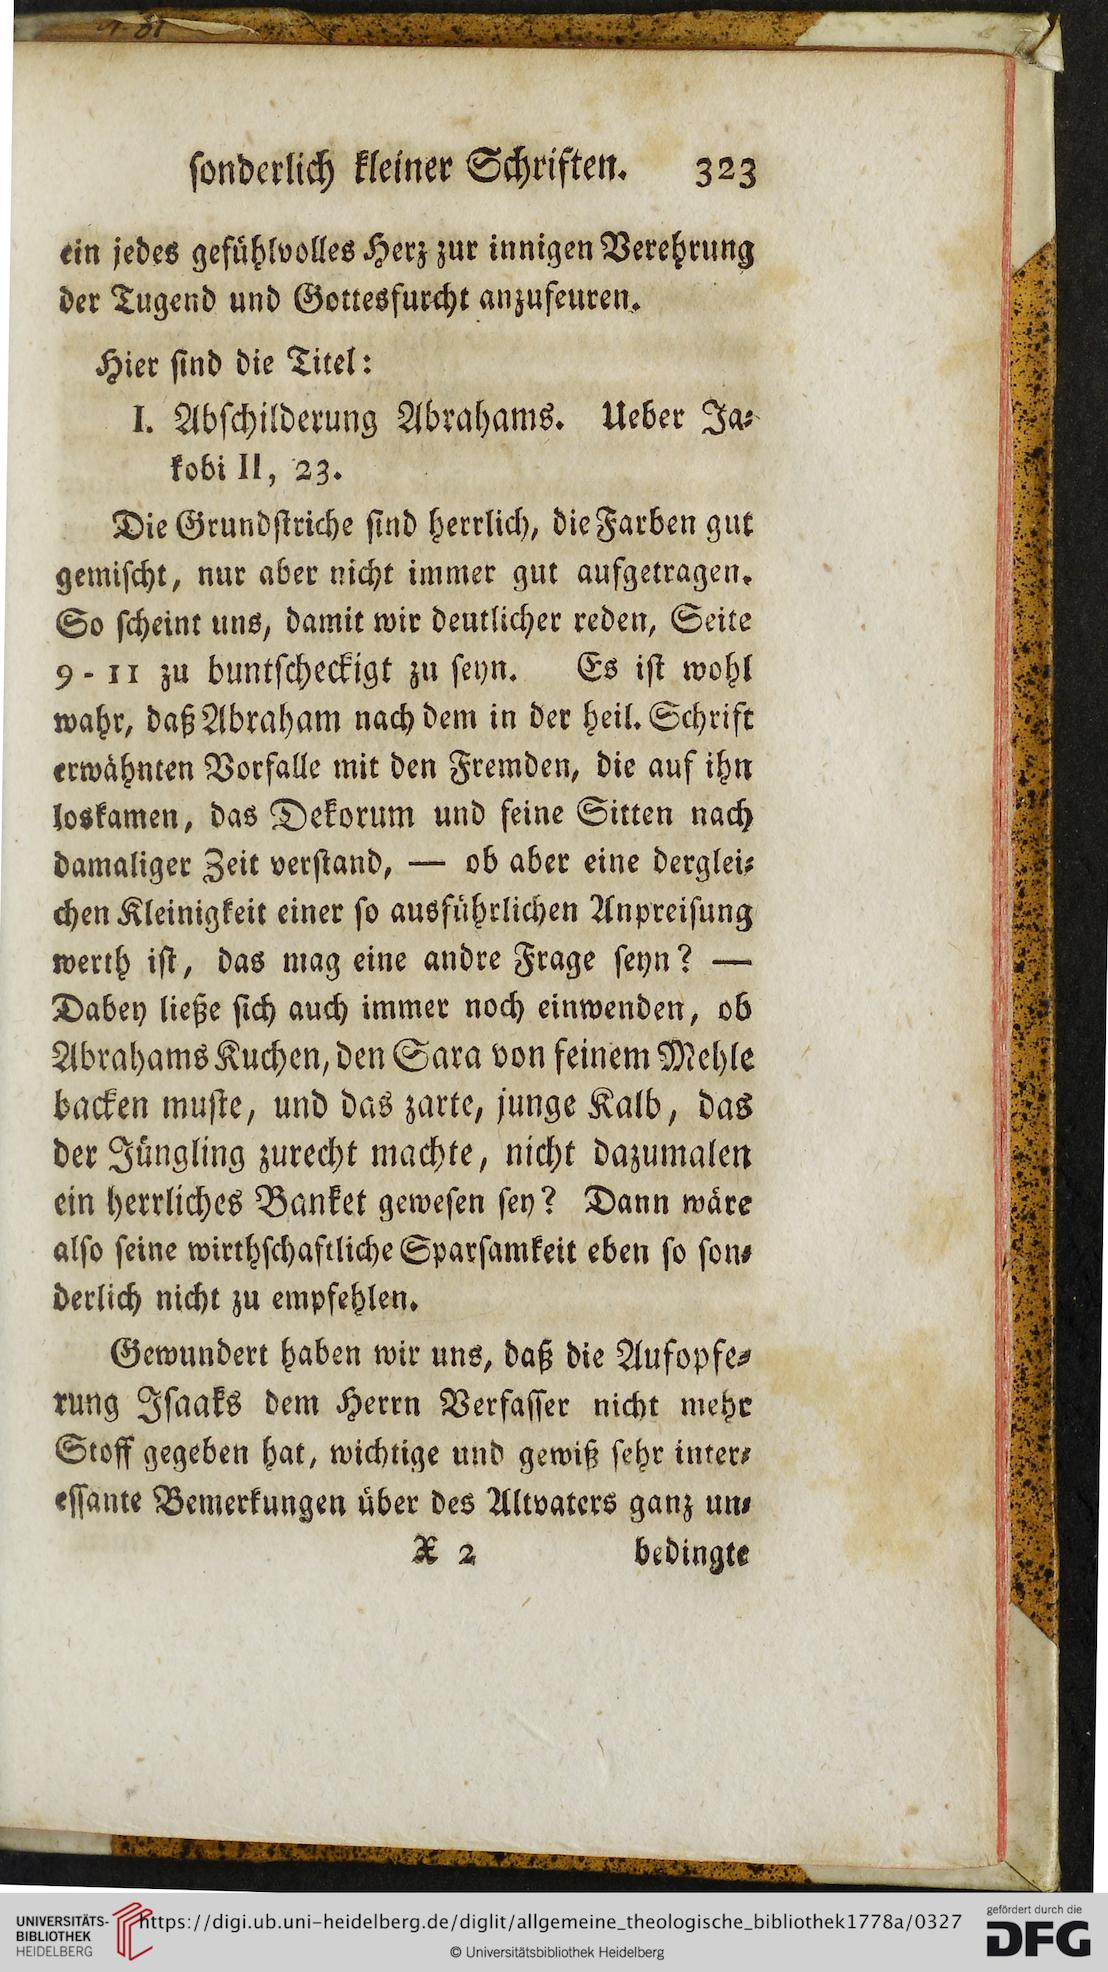 sonderlich kleiner Schriften. 323
ein jedes gefühlvolles Herz zur innigen Verehrung
der Tugend und Gottesfurcht anzufeuren.
Hier sind die Titel:
I. Abschilderung Abrahams. Ueber Ja-
kobi II, 23.
Die Grundstriche sind herrlich, die Farben gut
gemischt, nur aber nicht immer gut aufgetragen.
So scheint uns, damit wir deutlicher reden, Seite
9-11 zu buntscheckigt zu seyn. Es ist wohl
wahr, daß Abraham nach dem in der heil. Schrift
erwähnten Vorfalle mit den Fremden, die auf ihn
loskamen, das Dekorum und feine Sitten nach
damaliger Zeit verstand, — ob aber eine derglei-
chen Kleinigkeit einer so ausführlichen Anpreisung
werth ist, das mag eine andre Frage seyn? —
Dabey ließe sich auch immer noch einwenden, ob
Abrahams Kuchen, den Sara von feinem Mehle
backen muste, und das zarte, junge Kalb, das
der Jüngling zurecht machte, nicht dazumalen
ein herrliches Banket gewesen sey? Dann wäre
also seine wirthschaftliche Sparsamkeit eben so son-
derlich nicht zu empfehlen.
Gewundert haben wir uns, daß die Aufopfe-
rung Isaaks dem Herrn Verfasser nicht mehr
Stoff gegeben hat, wichtige und gewiß sehr inter-
essante Bemerkungen über des Altvaters ganz un-
X 2 bedingte
UNIVERSITÄTS-
BIBLIOTHEK
HEIDELBERG
https://digi.ub.uni-heidelberg.de/diglit/allgemeine_theologische_bibliothek1778a/0327
© Universitätsbibliothek Heidelberg
gefördert durch die
DFG